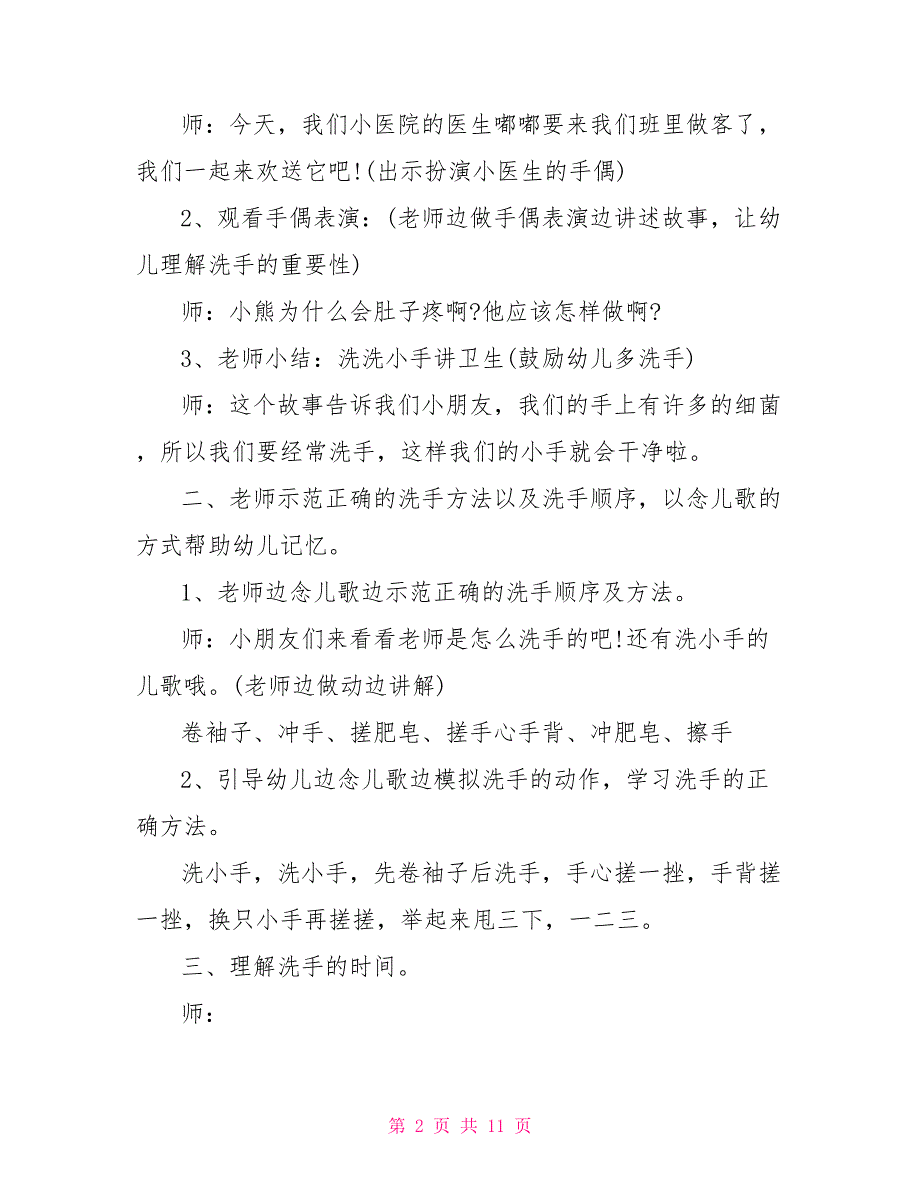 师：今天，我们小医院的医生嘟嘟要来我们班里做客了，
我们一起来欢送它吧!(出示扮演小医生的手偶)
2、观看手偶表演：(老师边做手偶表演边讲述故事，让幼
儿理解洗手的重要性)
师：小熊为什么会肚子疼啊?他应该怎样做啊?
3、老师小结：洗洗小手讲卫生(鼓励幼儿多洗手)
师：这个故事告诉我们小朋友，我们的手上有许多的细菌
，所以我们要经常洗手，这样我们的小手就会干净啦。
二、老师示范正确的洗手方法以及洗手顺序，以念儿歌的
方式帮助幼儿记忆。
1、老师边念儿歌边示范正确的洗手顺序及方法。
师：小朋友们来看看老师是怎么洗手的吧!还有洗小手的
儿歌哦。(老师边做动边讲解)
卷袖子、冲手、搓肥皂、搓手心手背、冲肥皂、擦手
2、引导幼儿边念儿歌边模拟洗手的动作，学习洗手的正
确方法。
洗小手，洗小手，先卷袖子后洗手，手心搓一挫，手背搓
一挫，换只小手再搓搓，举起来甩三下，一二三。
三、理解洗手的时间。
师：
第 2 页 共 11 页